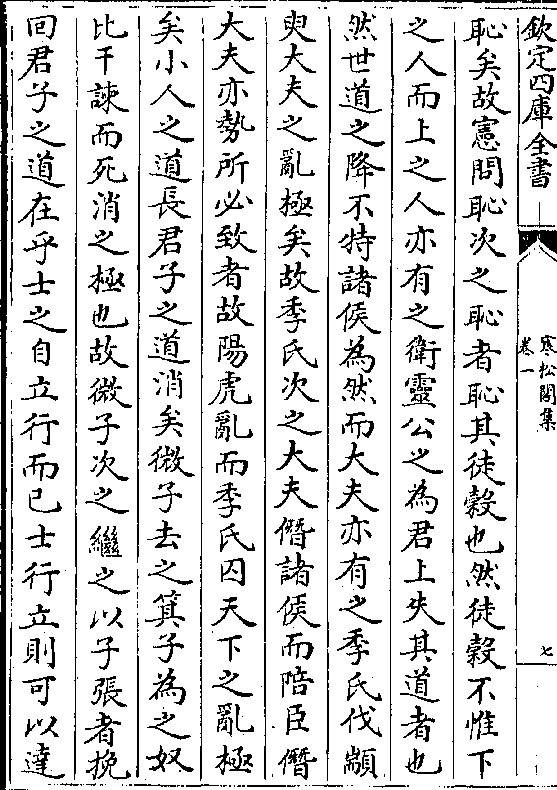 欽定四庫全書
寒松閣集
卷一
七
恥矣故憲問恥次之恥者恥其徒穀也然徒穀不惟下
之人而上之人亦有之衛靈公之為君上失其道者也
然世道之降不特諸侯為然而大夫亦有之季氏伐顓
臾大夫之亂極矣故季氏次之大夫僭諸侯而陪臣僭
大夫亦勢所必致者故陽虎亂而季氏囚天下之亂極
矣小人之道長君子之道消矣微子去之箕子為之奴
比干諫而死消之極也故微子次之繼之以子張者挽
回君子之道在乎士之自立行而已士行立則可以達